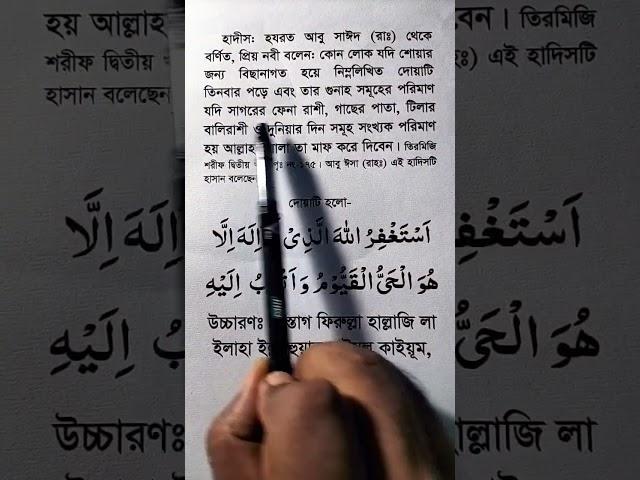 হাদীস: হযরত আবু সাঈদ (রাঃ) থেকে
বর্ণিত, প্রিয় নবী বলেন: কোন লোক যদি শোয়ার
জন্য বিছানাগত হয়ে নিম্নলিখিত দোয়াটি
তিনবার পড়ে এবং তার গুনাহ সমূহের পরিমাণ
যদি সাগরের ফেনা রাশী, গাছের পাতা, টিলার
বালিরাশী ও দুনিয়ার দিন সমূহ সংখ্যক পরিমাণ
হয় আল্লাহ তা মাফ করে দিবেন। তিরমিজি
শরীফ দ্বিতীয় পৃঃ নং-১৭৫। আবু ঈসা (রাহঃ) এই হাদিসটি
হাসান বলেছেন
দোয়াটি হলো-
اَسْتَغْفِرُ اللهَ الَّذِىْ اِلٰهَ اِلَّا
هُوَ الْحَىُّ الْقَيُّوْمُ وَ اِلَيْهِ
উচ্চারণঃ ফিরুল্লা হাল্লাজি লা
ইলাহা কাইয়ূম,